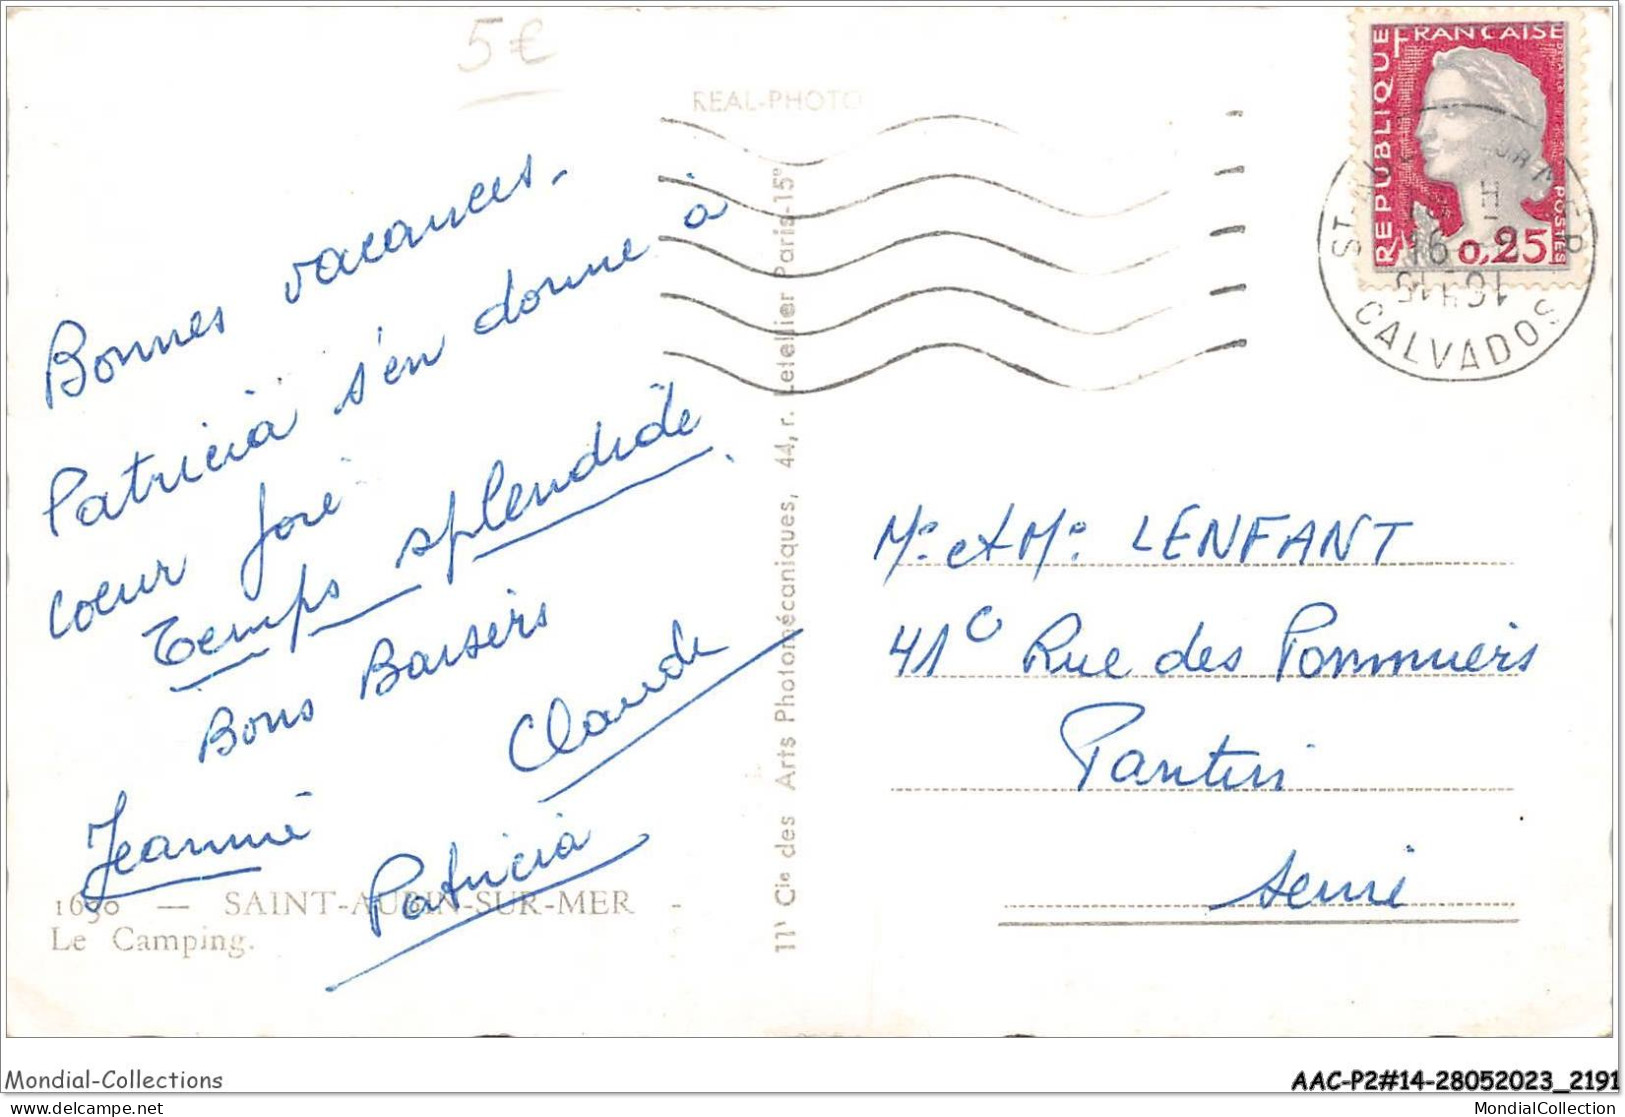 5€
REAL-PHOTO
Bonnes vacances.
Patricia s'en donne à
coeur joie
Temps splendide
Bons Baisers
Claude
Jeannie
Patricia
1650 — SAINT-AUBIN-SUR-MER -
Le Camping.
Cie des Arts Photomécaniques, 44, r. Letellier Paris-15e
REPUBLIQUE FRANCAISE
POSTES
0,25
CALVADOS
Mr et Me LENFANT
41C Rue des Pommiers
Pantin
Seine
Mondial-Collections
AAC-P2#14-28052023_2191
www.delcampe.net
MondialCollection